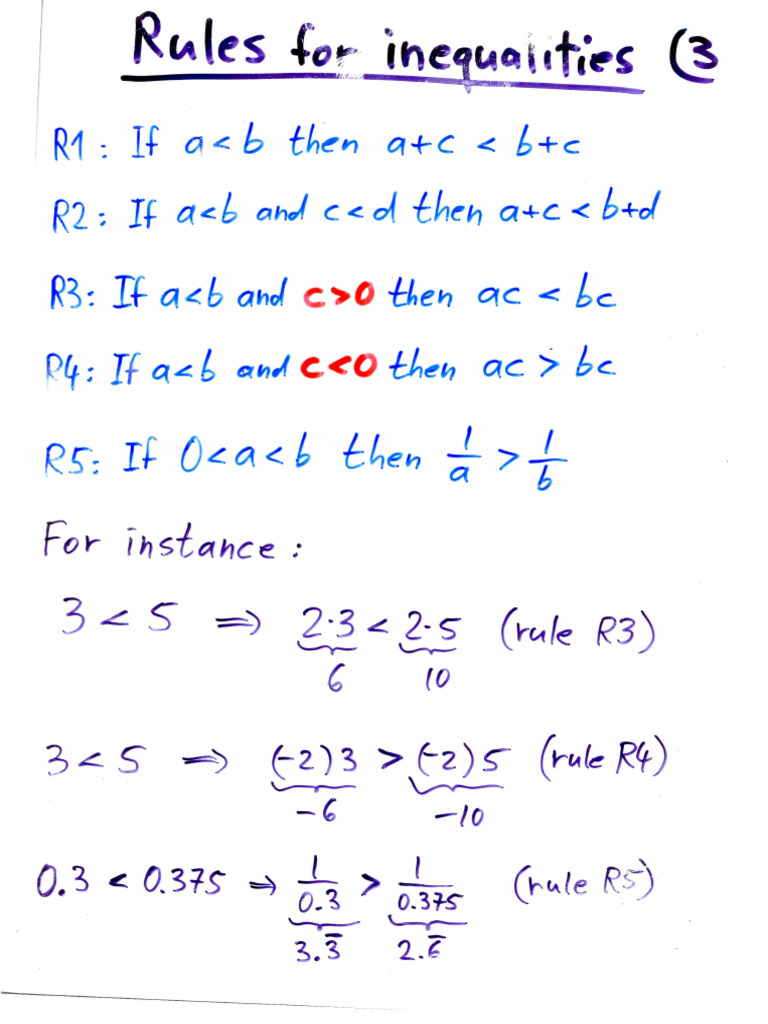 Rules for inequalities (3
R1: If a<b then a+c < b+c
R2: If a<b and c<d then a+c<b+d
R3: If a<b and c>0 then ac < bc
R4: If a<b and c<0 then ac > bc
R5: If 0<a<b then 1/a > 1/b
For instance:
3 < 5 ⇒ 2·3 < 2·5 (rule R3)
6 10
3 < 5 ⇒ (-2)3 > (-2)5 (rule R4)
-6 -10
0.3 < 0.375 ⇒ 1/0.3 > 1/0.375 (rule R5)
3.3̅ 2.6̅